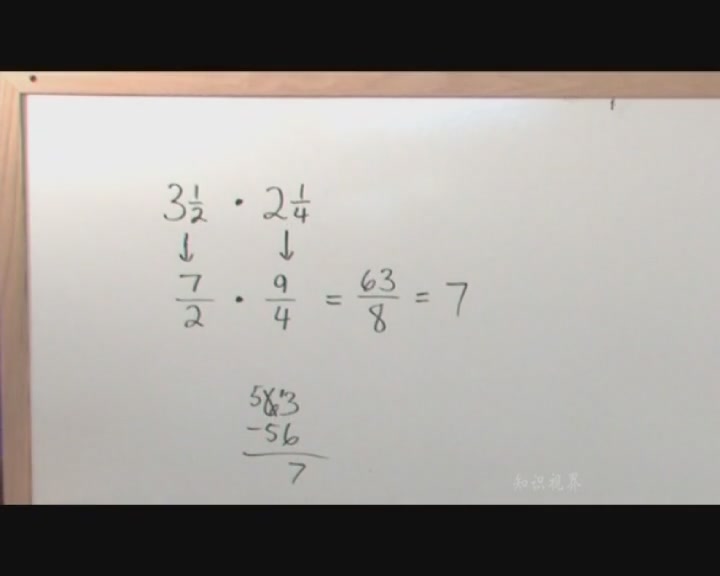 3 1/2 · 2 1/4
↓ ↓
7/2 · 9/4 = 63/8 = 7
5 6 13
-56
7
知识视界